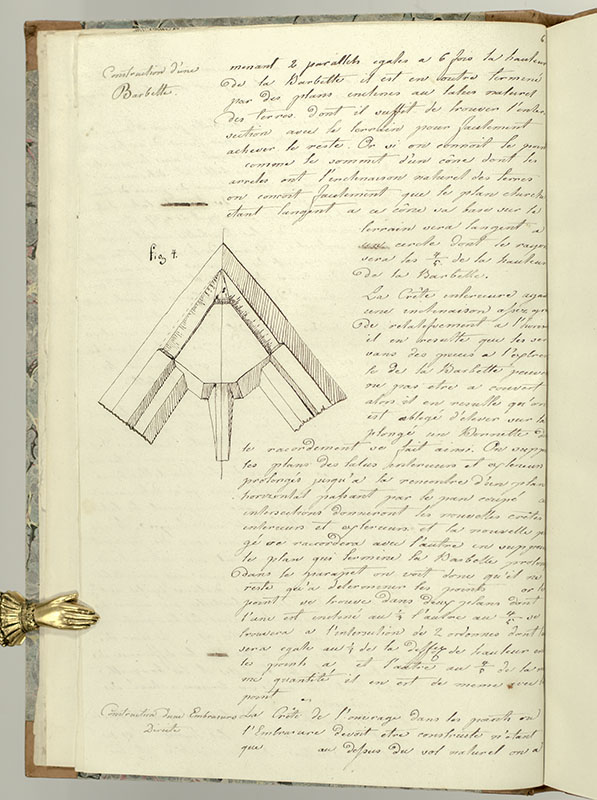 6
Construction d'une
Barbette.
menant 2 parallels egales a 6 fois la hauteur
de la Barbette il est en outre terminé
par des plans inclinés au talus naturel
des terres. dont il suffit de trouver l'inter
section avec le terrein pour facilement
achever le reste. Or si on connoit le point
comme le sommet d'un cône dont les
arretes ont l'inclinaison naturel des terres
on conçoit facilement que le plan cherché
etant tangent a ce cône sa base sur le
terrain sera tangent a
cercle dont le rayon
sera les 4/5 de la hauteur
de la Barbette.
fig 4.
La Crête interieure ayant
une inclinaison assez
de relativement a l'
il en resulte que les
vans des pieces a l'
de la Barbette peuvent
ou pas etre a couvert
alors il en resulte qu'on
est obligé d'elever sur la
plongé un Bonnette
le racordement se fait ainsi. On
les plans des talus interieurs et exterieurs
prolongés jusqu'a la rencontre d'un plan
horizontal passant par le pan coupé
intersections donneront les nouvelles crêtes
interieurs et exterieurs et la nouvelle
gé se raccordera avec l'autre en
le plan qui termine la Barbette
dans le parapet on voit donc qu'il ne
reste qu'a determiner les points or
point se trouve dans deux plans dont
l'une est incliné au l'autre au 4/5 se
trouvera a l'intersection de 2 ordonnes dont
sera egale au de la de hauteur
les points a et l'autre au 4/5 de la
me quantité il en est de meme
point
Construction d'une Embrasure
Directe
La Crête de l'ouvrage dans les points ou
l'Embrasure devoit etre construite n'etant
que au dessus du sol naturel on a